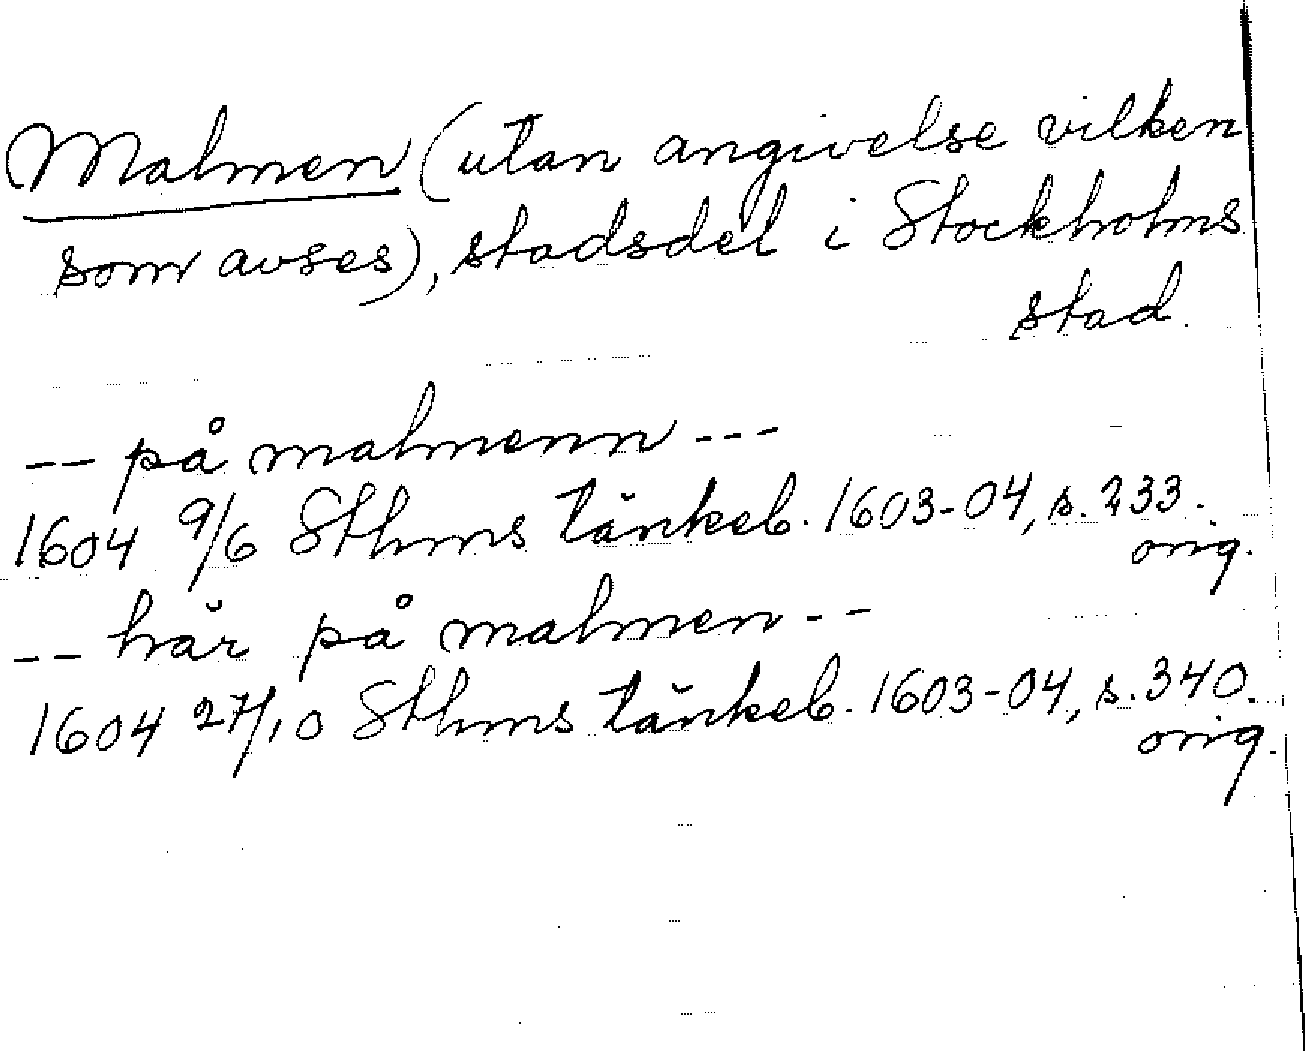 Malmen (utan angivelse vilken
som avses), stadsdel i Stockholms
stad.
-- på malmenn ---
1604 9/6 Sthms tänkeb. 1603-04, s. 233.
orig.
-- här på malmen --
1604 27/10 Sthms tänkeb. 1603-04, s. 340.
orig.